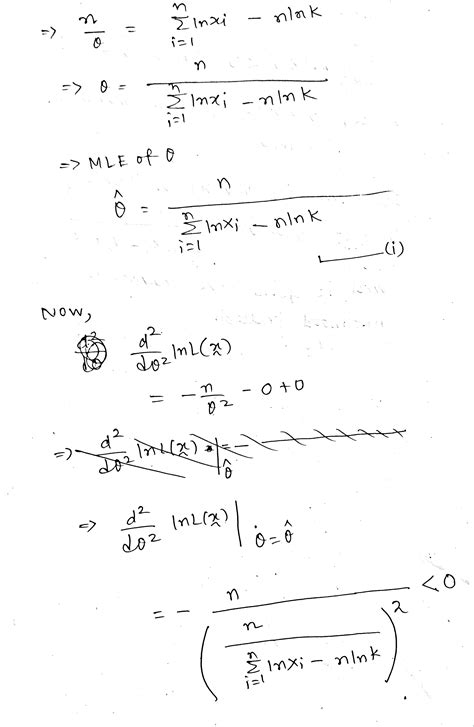 => n/θ = Σ_{i=1}^{n} ln xi − n ln k
=> θ = n / (Σ_{i=1}^{n} ln xi − n ln k)
=> MLE of θ
θ̂ = n / (Σ_{i=1}^{n} ln xi − n ln k)
(i)
Now,
d²/dθ² ln L(x̰)
= − n/θ² − 0 + 0
=> d²/dθ² ln L(x̰) |_θ̂ = −
=> d²/dθ² ln L(x̰) |_{θ = θ̂}
= − n / (n / (Σ_{i=1}^{n} ln xi − n ln k))² < 0